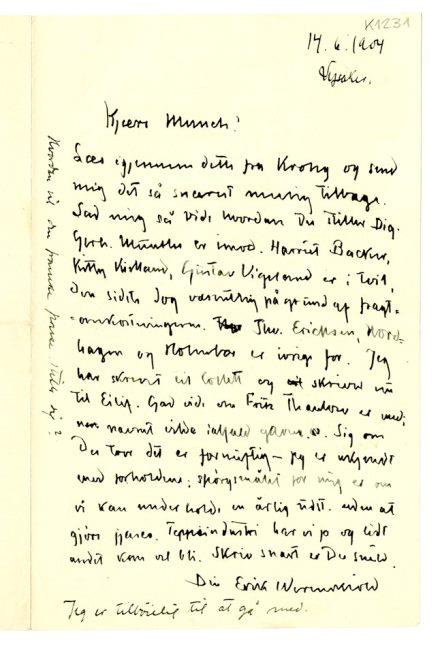 K1231
14.6.1904
Kjære Munch!
Læs igjennem dette fra Krohg og send
mig det så snarest mulig tilbage.
Lad mig så vide hvordan Du stiller Dig.
Gerh. Munthe er imod. Harriet Backer,
Kitty Kielland, Gustav Vigeland er i tvil,
den sidste dog væsentlig på grund af fragt-
omkostningerne. Thv. Erichsen, Nord-
hagen og Holmboe er ivrige for. Jeg
har skrevet til Collett og skriver nu
til Eilif. Gad vide om Fritz Thaulow er med;
hans navn vilde ialfald Sig om
Du tror det er fornuftig – jeg er ukjendt
med forholdene; spørgsmålet for mig er om
vi kan underholde en årlig udst. uden at
gjøre fiasco. har vi jo og lidt
andet kan vel bli. Skriv snart er Du snild.
Din Erik Werenskiold
Jeg er tilbøielig til at gå med.
Hvordan vil den franske presse stille sig?